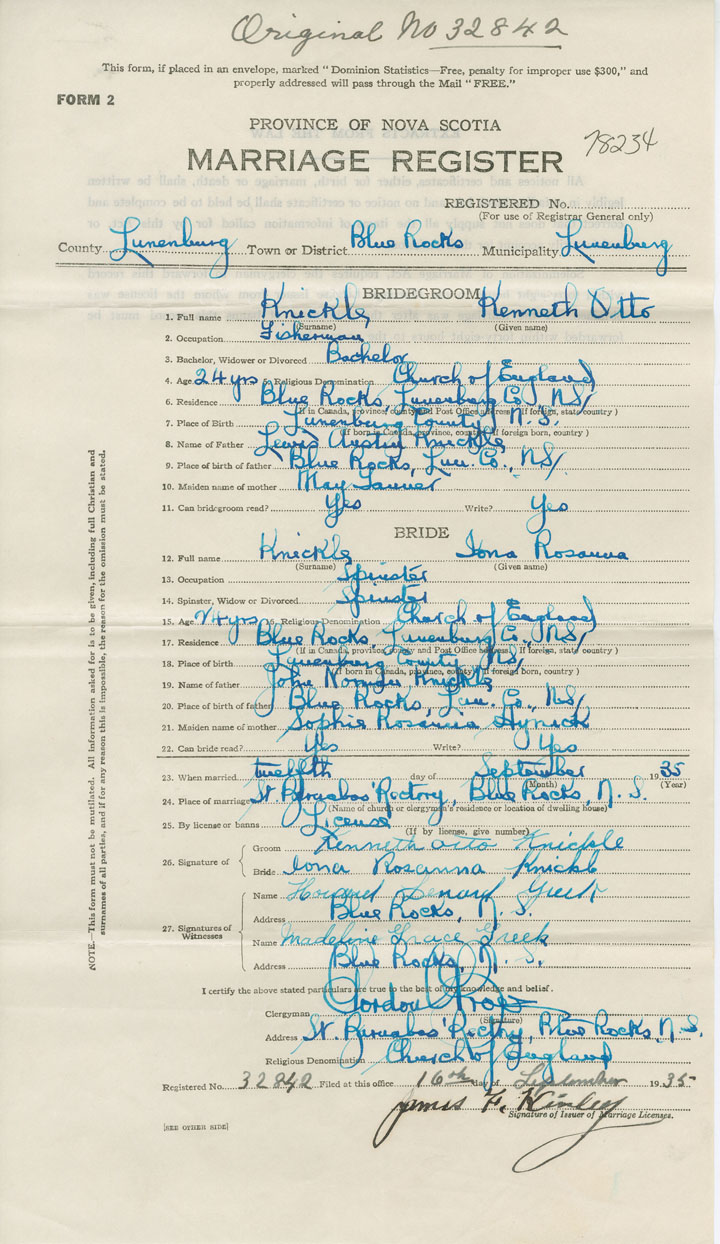 Original No 32842
This form, if placed in an envelope, marked "Dominion Statistics—Free, penalty for improper use $300," and
properly addressed will pass through the Mail "FREE."
FORM 2
PROVINCE OF NOVA SCOTIA
78234
MARRIAGE REGISTER
REGISTERED No.
(For use of Registrar General only)
County Lunenburg Town or District Blue Rocks Municipality Lunenburg
BRIDEGROOM
1. Full name Knickle Kenneth Otto
(Surname) (Given name)
2. Occupation Fisherman
3. Bachelor, Widower or Divorced Bachelor
4. Age 24 yrs 5. Religious Denomination Church of England
6. Residence Blue Rocks, Lunenburg Co., N.S.
(If in Canada, province county and Post Office address. If foreign, state country)
7. Place of Birth Lunenburg County N.S.
(If born in Canada, province, county. If foreign born, country)
8. Name of Father Lewis Austin Knickle
9. Place of birth of father Blue Rocks, Lun. Co., N.S.
10. Maiden name of mother May Tanner
11. Can bridegroom read? Yes Write? Yes
BRIDE
12. Full name Knickle Iona Rosanna
(Surname) (Given name)
13. Occupation Spinster
14. Spinster, Widow or Divorced Spinster
15. Age 24 yrs 16. Religious Denomination Church of England
17. Residence Blue Rocks, Lunenburg Co., N.S.
(If in Canada, province, county and Post Office address. If foreign, state country)
18. Place of birth Lunenburg County N.S.
(If born in Canada, province, county. If foreign born, country)
19. Name of father John Norman Knickle
20. Place of birth of father Blue Rocks, Lun. Co., N.S.
21. Maiden name of mother Sophie Rosanna Hynick
22. Can bride read? Yes Write? Yes
23. When married twelfth day of September 1935
(Month) (Year)
24. Place of marriage St. Barnabas' Rectory, Blue Rocks, N.S.
(Name of church or clergymen's residence or location of dwelling house)
25. By license or banns License
(If by license, give number)
26. Signature of Groom Kenneth Otto Knickle
Bride Iona Rosanna Knickle
27. Signatures of Witnesses
Name Howard
Address Blue Rocks, N.S.
Name Madeline Grace Greek
Address Blue Rocks, N.S.
I certify the above stated particulars are true to the best of my knowledge and belief.
Clergyman Gordon
(Signature)
Address St. Barnabas' Rectory, Blue Rocks, N.S.
Religious Denomination Church of England
Registered No. 32842 Filed at this office 16th day of September 1935
James F. Kinley
Signature of Issuer of Marriage Licenses.
[SEE OTHER SIDE]
NOTE.—This form must not be mutilated. All information asked for is to be given, including full Christian and
surnames of all parties, and if for any reason this is impossible, the reason for the omission must be stated.